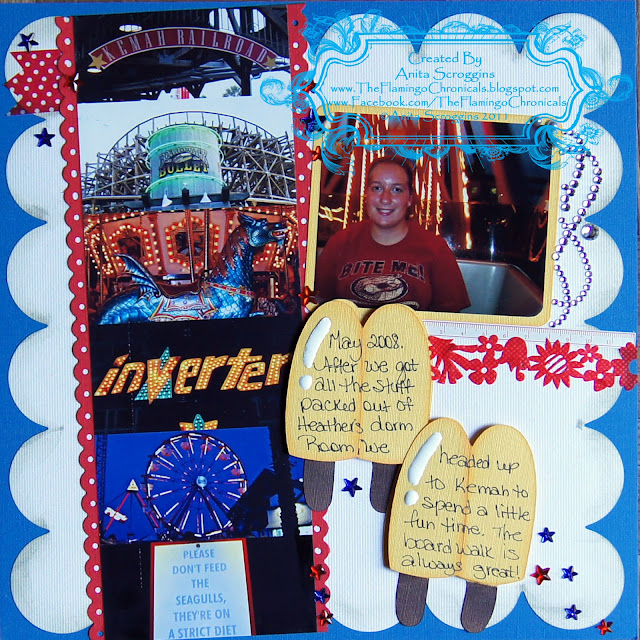 KEMAH RAILROAD
Created By
Anita Scroggins
www.TheFlamingoChronicals.blogspot.com
www.Facebook.com/TheFlamingoChronicals
© Anita Scroggins 2011
BULLET
BITE ME!
inverter
May 2008.
After we got
all the stuff
packed out of
Heathers dorm
Room, we
headed up
to Kemah to
spend a little
fun time. The
board walk is
always great!
PLEASE
DON'T FEED
THE
SEAGULLS,
THEY'RE ON
A STRICT DIET